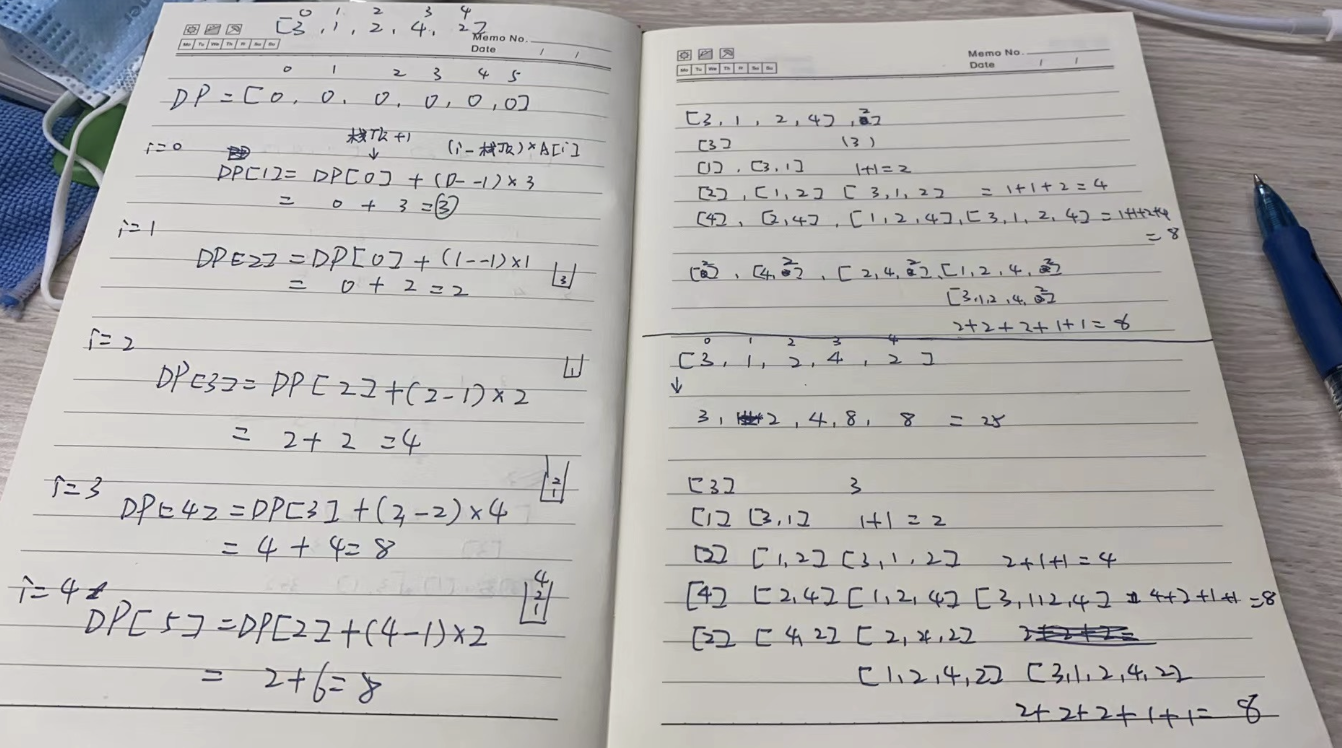 0 1 2 3 4
[3, 1, 2, 4, 2]
Memo No.
Mo Tu We Th Fr Sa Su
Date / /
0 1 2 3 4 5
DP = [0, 0, 0, 0, 0, 0]
栈顶+1 (i-栈顶)×A[i]
i=0
↓
DP[1] = DP[0] + (0--1)×3
= 0 + 3 = 3
i=1
DP[2] = DP[0] + (1--1)×1
3
= 0 + 2 = 2
i=2
1
DP[3] = DP[2] + (2-1)×2
= 2 + 2 = 4
i=3
2
1
DP[4] = DP[3] + (3-2)×4
= 4 + 4 = 8
i=4
4
2
1
DP[5] = DP[2] + (4-1)×2
= 2+6=8
Memo No.
Mo Tu We Th Fr Sa Su
Date / /
[3, 1, 2, 4], 2]
[3] (3)
[1], [3,1] 1+1=2
[2], [1,2] [3,1,2] = 1+1+2=4
[4], [2,4], [1,2,4], [3,1,2,4] = 1+1+2+4
= 8
[2], [4,2], [2,4,2] [1,2,4,2]
[3,1,2,4,2]
2+2+2+1+1=8
0 1 2 3 4
[3, 1, 2, 4, 2]
↓
3, 2, 4, 8, 8 = 25
[3] 3
[1] [3,1] 1+1=2
[2] [1,2] [3,1,2] 2+1+1=4
[4] [2,4] [1,2,4] [3,1,2,4] = 4+2+1+1=8
[2] [4,2] [2,4,2]
[1,2,4,2] [3,1,2,4,2]
2+2+2+1+1= 8